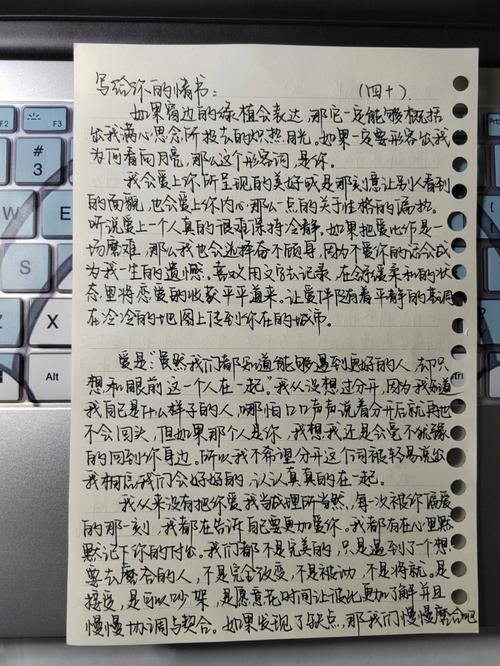 写给你的情书： （四十）
如果窗边的绿植会表达，那它一定能够概括
出我满心思念所投去的炽热目光。如果一定要形容出我
为何看向月亮，那么这个形容词，是你。
我会爱上你所呈现的美好或是刻意让别人看到
的面貌，也会爱上你内心那么一点的关于性格的偏执。
听说爱上一个人真的很难保持冷静，如果把爱比作是一
场磨难，那么我也会选择奋不顾身，因为不爱你的话会成
为我一生的遗憾。喜欢用文字去记录，在舒缓柔和的状
态里将恋爱的收获平平道来。让爱伴随着平静的基调
在冷冷的地图上传到你在的城市。
爱是：“虽然我们都知道能够遇到更好的人，却只
想和眼前这一个人在一起。”我从没想过分开，因为我知道
我自己是什么样子的人，哪怕口口声声说着分开后就再也
不会回头，但如果那个人是你，我想我还是会毫不犹豫
的回到你身边。所以我不希望分开这个词被轻易说出
我相信我们会好好的，认认真真的在一起。
我从来没有把你爱我当成理所当然，每一次被你偏爱
的那一刻，我都在告诉自己要更加爱你。我都有在心里默
默记下你的付出。我们都不是完美的，只是遇到了个想
要去磨合的人，不是完全改变，不是被动，不是将就。是
接受，是可以吵架，是愿意花时间让彼此更加了解并且
慢慢协调与契合。如果发现了缺点，那我们慢慢磨合吧
F2
F3
#
3
$
4